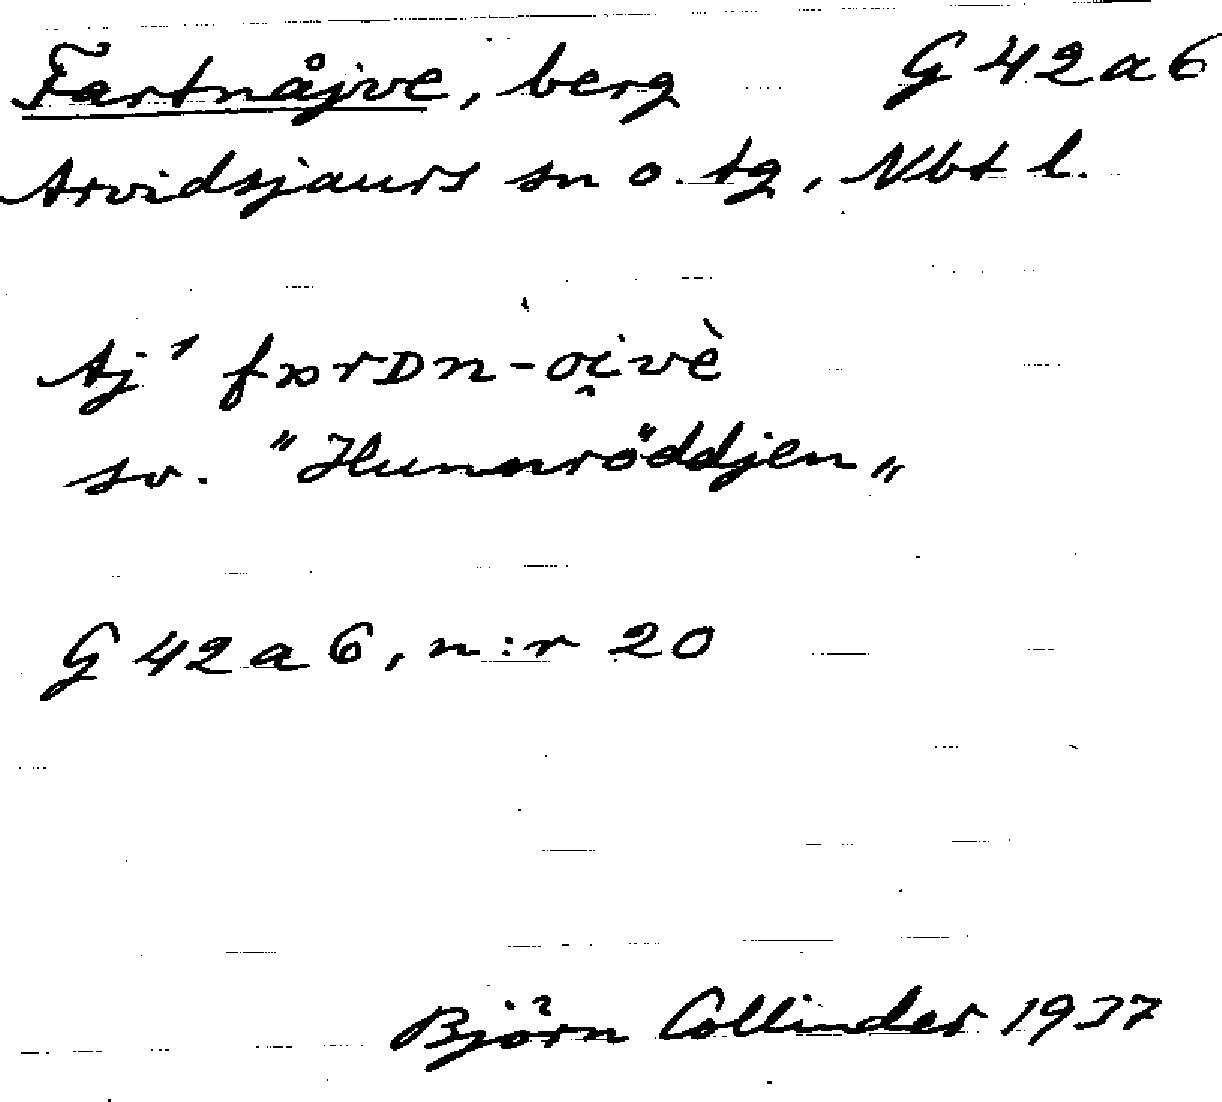 Fartnåjve, berg G 42 a 6
Arvidsjaurs sn o. tg, Nbt l.
Aj¹ fɒrDn-oi̯vè
sv. "Hunnröddjen"
G 42 a 6, n:r 20
Björn Collinder 1937